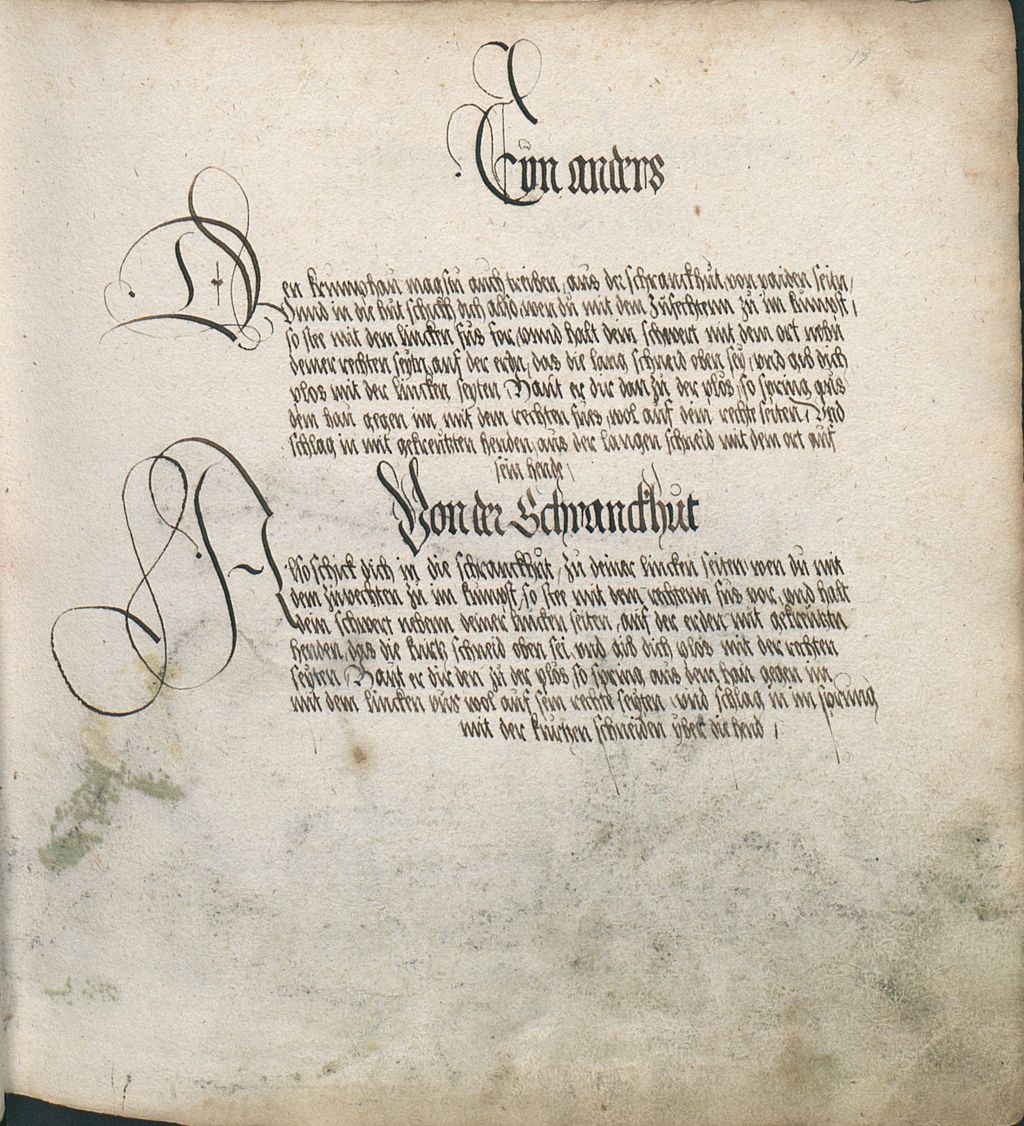 Eyn anders
Den krumphau magstu auch treiben, aus der schranckhut, von paiden seitn,
Vnnd in die hut schickh dich also, wen du mit dem Zufechtenn zu im kumpst,
so stee mit dem lincken fus for, vnnd halt dein schwert mit dem ort nebn
deiner rechten seytn, auf der erdn, das die lang schneid oben sey, vnd gib dich
plos mit der lincken seyten Haut er dir dan zu der plos, so spring aus
dem hau gegen im, mit dem rechten fues, wol auf dein rechte seiten, Vnd
schlag in mit gekreutzten henden, aus der langen schneid mit dem ort auf
sein hende,
Von der Schranckhut
Also schick dich in die schranckhut, zu deiner lincken seiten, wen du mit
dem zuvechten zu im kumpst, so stee mit dem rechtenn fus vor, vnd halt
dein schwert nebenn deiner lincken seiten, auf der erden mit gekreutztn
henden, das die kurtz schneid oben sei vnd gib dich plos mit der rechten
seyten Haut er dir den zu der plos so spring aus dem hau gegen im
mit dem lincken vus wol auf sein rechte seyten, vnd schlag in im sprung
mit der kurtzen schneiden yber die hend,